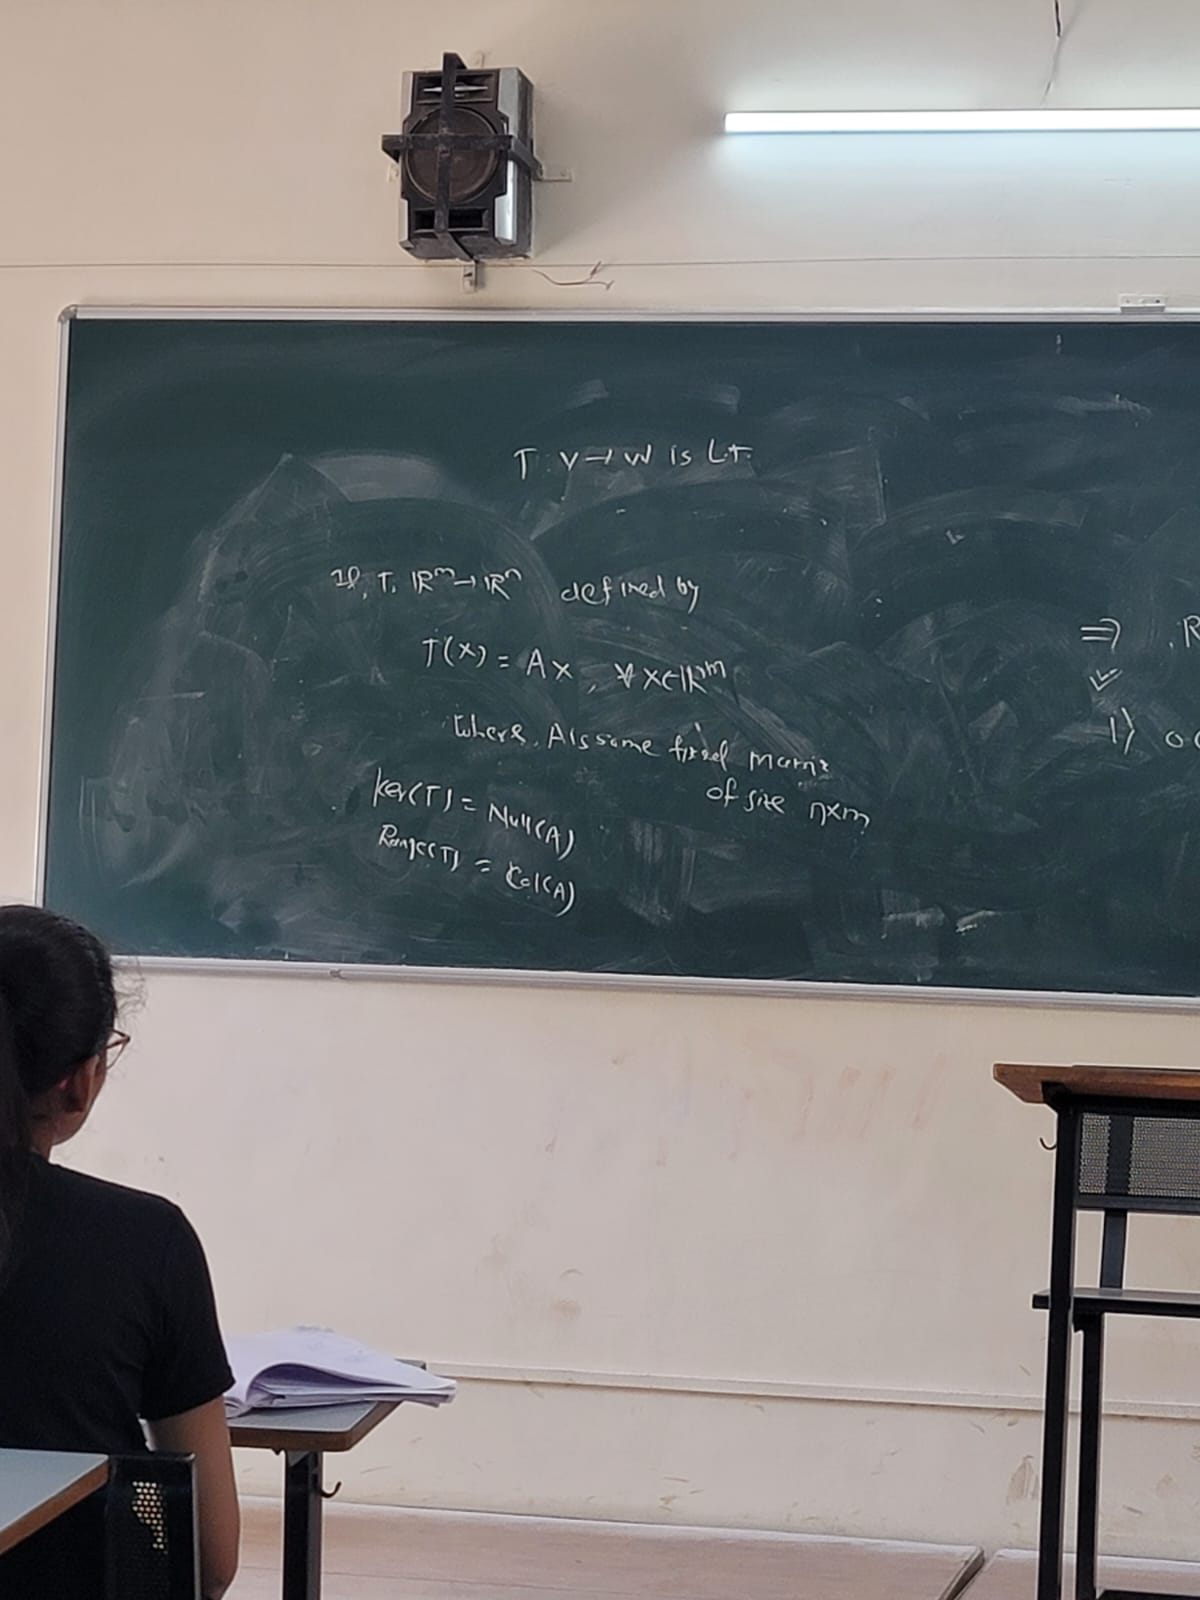 T : V → W is L.T.
If, T: ℝᵐ → ℝⁿ defined by
T(x) = Ax , ∀ x∈ℝᵐ
where, A is some fixed matrix
of size n×m
Ker(T) = Null(A)
Range(T) = Col(A)
⇒ , R
1)